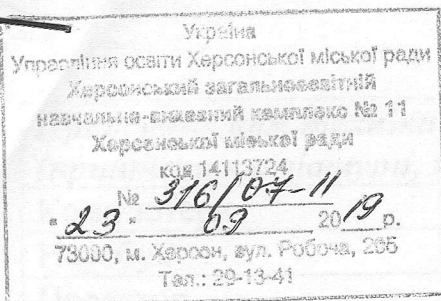 Україна
Управління освіти Херсонської міської ради
Херсонський загальноосвітній
навчально-виховний комплекс № 11
Херсонської міської ради
код 14113724
№ 316/07-11
"23" 09 2019 р.
73000, м. Херсон, вул. Робоча, 265
Тел.: 29-13-41